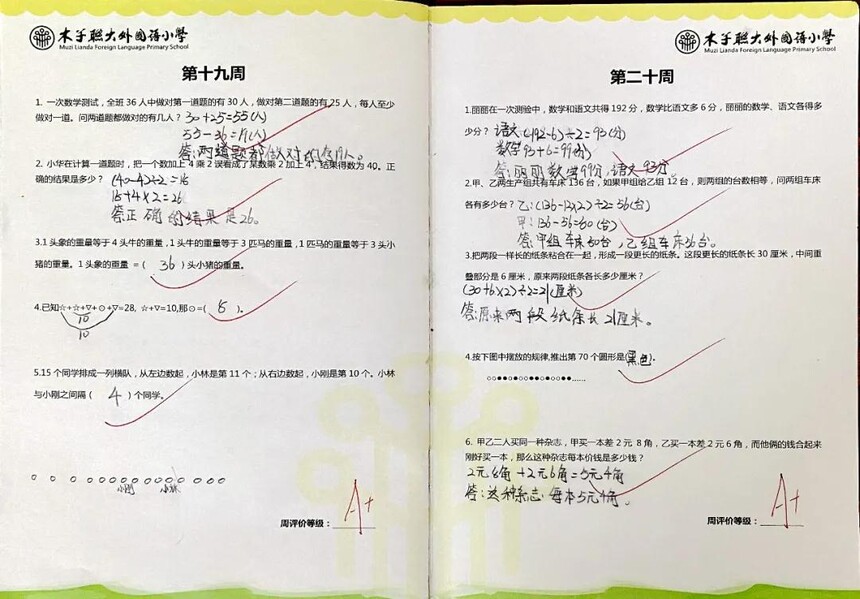 木子联大外国语小学
Muzi Lianda Foreign Language Primary School
第十九周
1. 一次数学测试，全班 36 人中做对第一道题的有 30 人，做对第二道题的有 25 人，每人至少
做对一道。问两道题都做对的有几人？ 30+25=55(人)
55-36=19(人)
答:两道题都做对的有19人。
2. 小华在计算一道题时，把一个数加上 4 乘 2 误看成了某数乘 2 加上 4，结果得数为 40。正
确的结果是多少？ (40-4)÷2=18
18+4×2=26
答正确的结果是26。
3.1 头象的重量等于 4 头牛的重量，1 头牛的重量等于 3 匹马的重量，1 匹马的重量等于 3 头小
猪的重量。1 头象的重量 =（ 36 ）头小猪的重量。
4.已知☆+☆+▽+⊙+▽=28, ☆+▽=10,那⊙=( 8 )。
10
10
5.15 个同学排成一列横队，从左边数起，小林是第 11 个；从右边数起，小刚是第 10 个。小林
与小刚之间隔（ 4 ）个同学。
小刚 小林
周评价等级： A+
木子联大外国语小学
Muzi Lianda Foreign Language Primary School
第二十周
1.丽丽在一次测验中，数学和语文共得 192 分，数学比语文多 6 分，丽丽的数学、语文各得多
少分？ 语文:(192-6)÷2=93(分)
数学93+6=99(分)
答:丽丽数学99分,语文93分。
2.甲、乙两生产组共有车床 136 台，如果甲组给乙组 12 台，则两组的台数相等，问两组车床
各有多少台？ 乙:(136-12×2)÷2=56(台)
甲:136-56=80(台)
答:甲组车床80台，乙组车床56台。
3.把两段一样长的纸条粘合在一起，形成一段更长的纸条。这段更长的纸条长 30 厘米，中间重
叠部分是 6 厘米，原来两段纸条各长多少厘米？
(30+6×2)÷2=21(厘米)
答:原来两段纸条长21厘米。
4.按下图中摆放的规律,推出第 70 个圆形是(黑色)。
○○●●○●○○●●○●○○●●……
6. 甲乙二人买同一种杂志，甲买一本差 2 元 8 角，乙买一本差 2 元 6 角，而他俩的钱合起来
刚好买一本，那么这种杂志每本价钱是多少钱？
2元8角+2元6角=5元4角
答:这种杂志每本5元4角。
周评价等级： A+